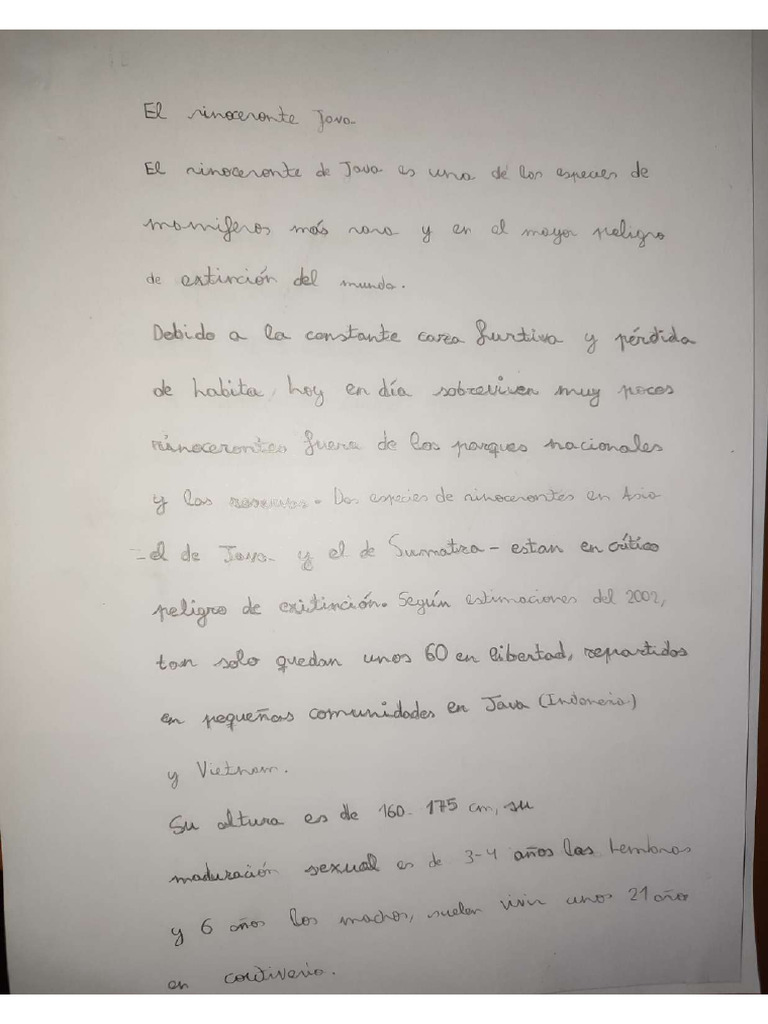 El rinoceronte Java.
El rinoceronte de Java es una de los especies de
mamiferos más raro y en el mayor peligro
de extinción del mundo.
Debido a la constante caza furtiva y pérdida
de habita, hoy en día sobreviven muy pocos
rinocerontes fuera de los parques nacionales
y las reservas. Dos especies de rinocerontes en Asia
- el de Java y el de Sumatra - estan en crítico
peligro de exitinción. Según estimaciones del 2002,
tan solo quedan unos 60 en libertad, repartidos
en pequeñas comunidades en Java (Indonesia)
y Vietnam.
Su altura es de 160-175 cm, su
maduración sexual es de 3-4 años las hembras
y 6 años los machos, suelen vivir unos 21 año
en coutiverio.